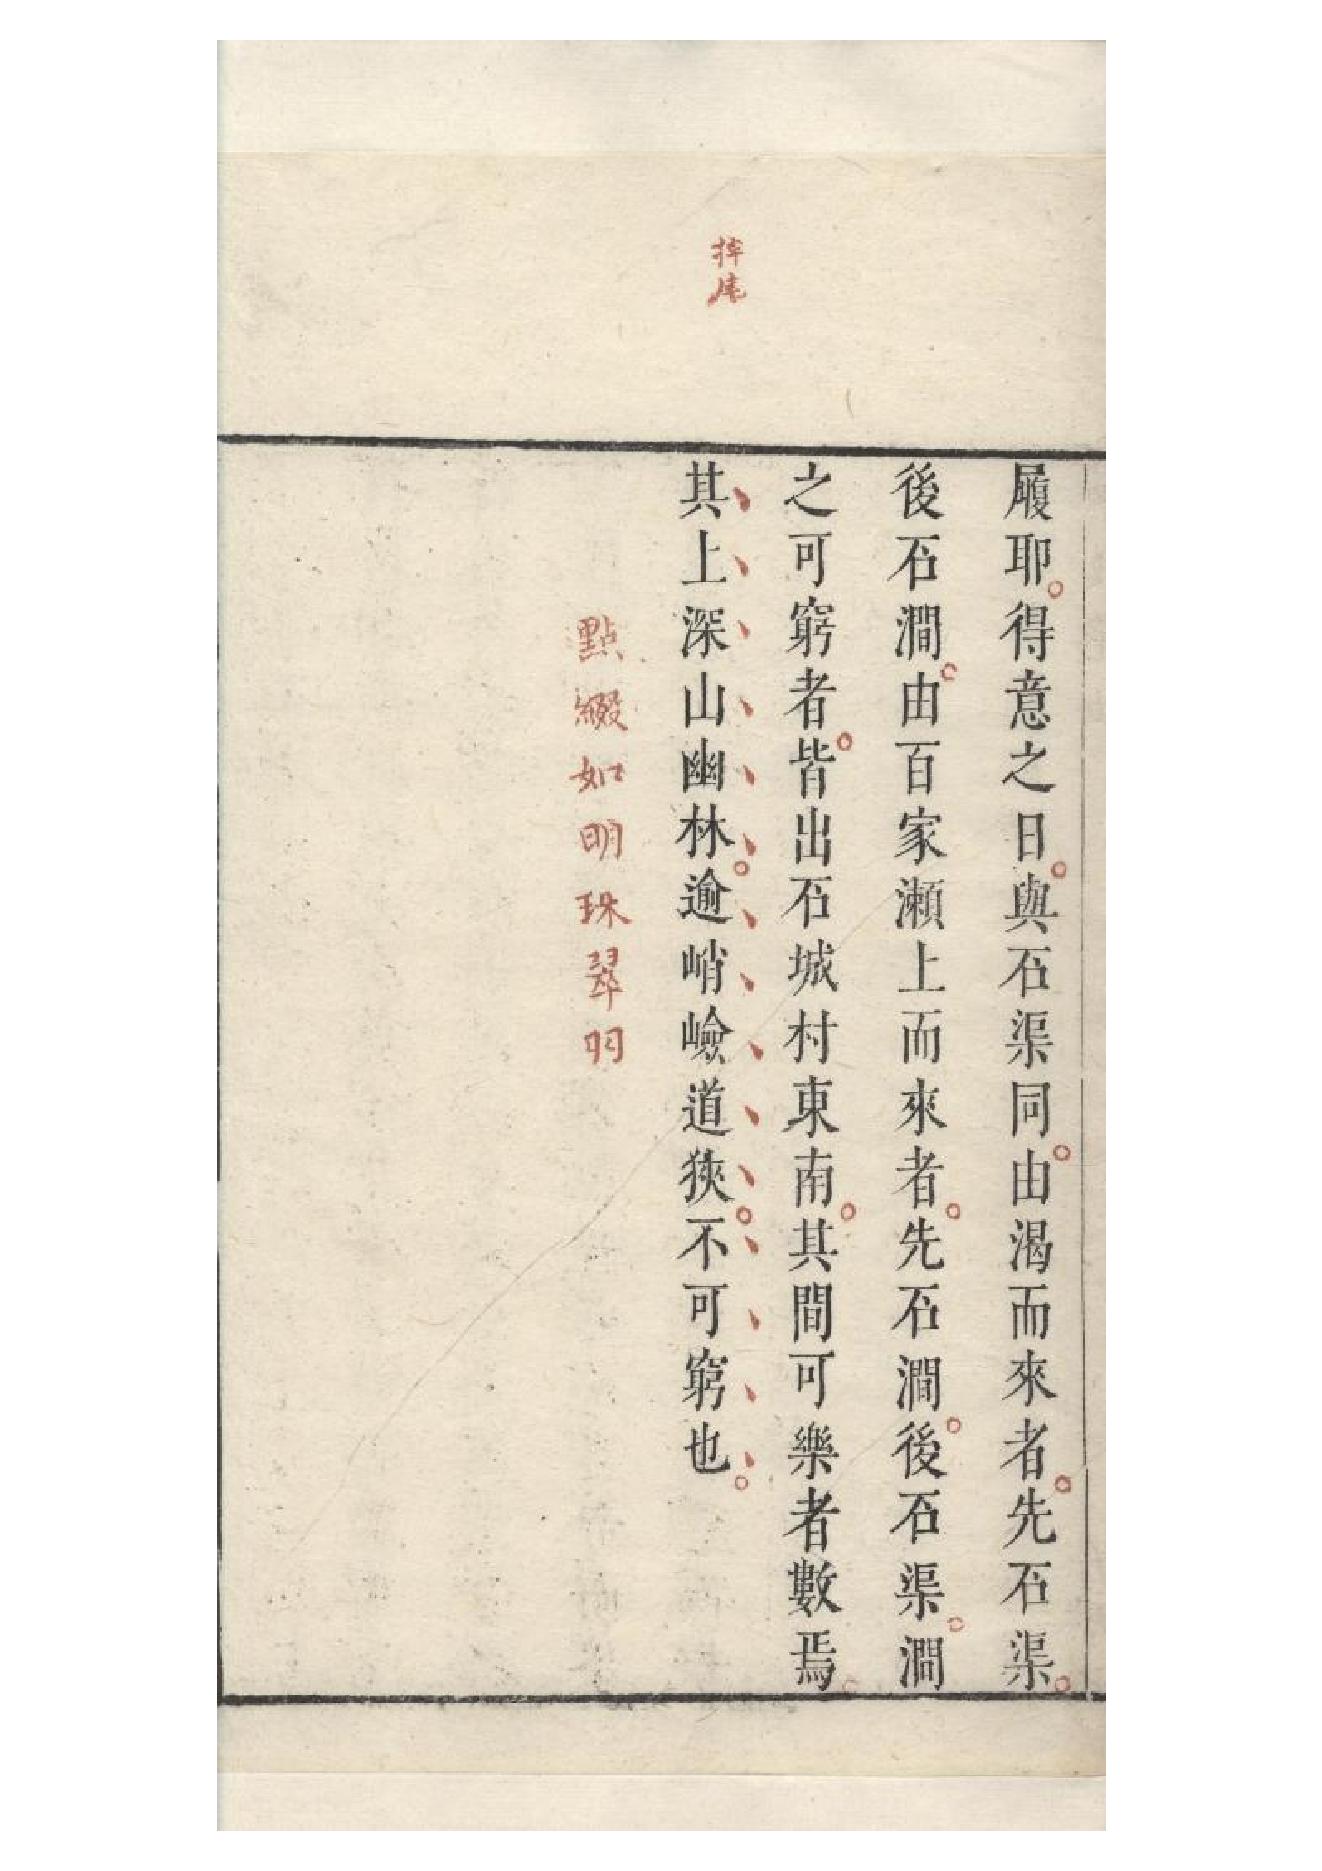 掉尾
履耶得意之日與石渠同由渴而來者先石渠
後石澗由百家瀨上而來者先石澗後石渠澗
之可窮者皆出石城村東南其間可樂者數焉
其上深山幽林逾峭嶮道狹不可窮也
點綴如明珠翠羽